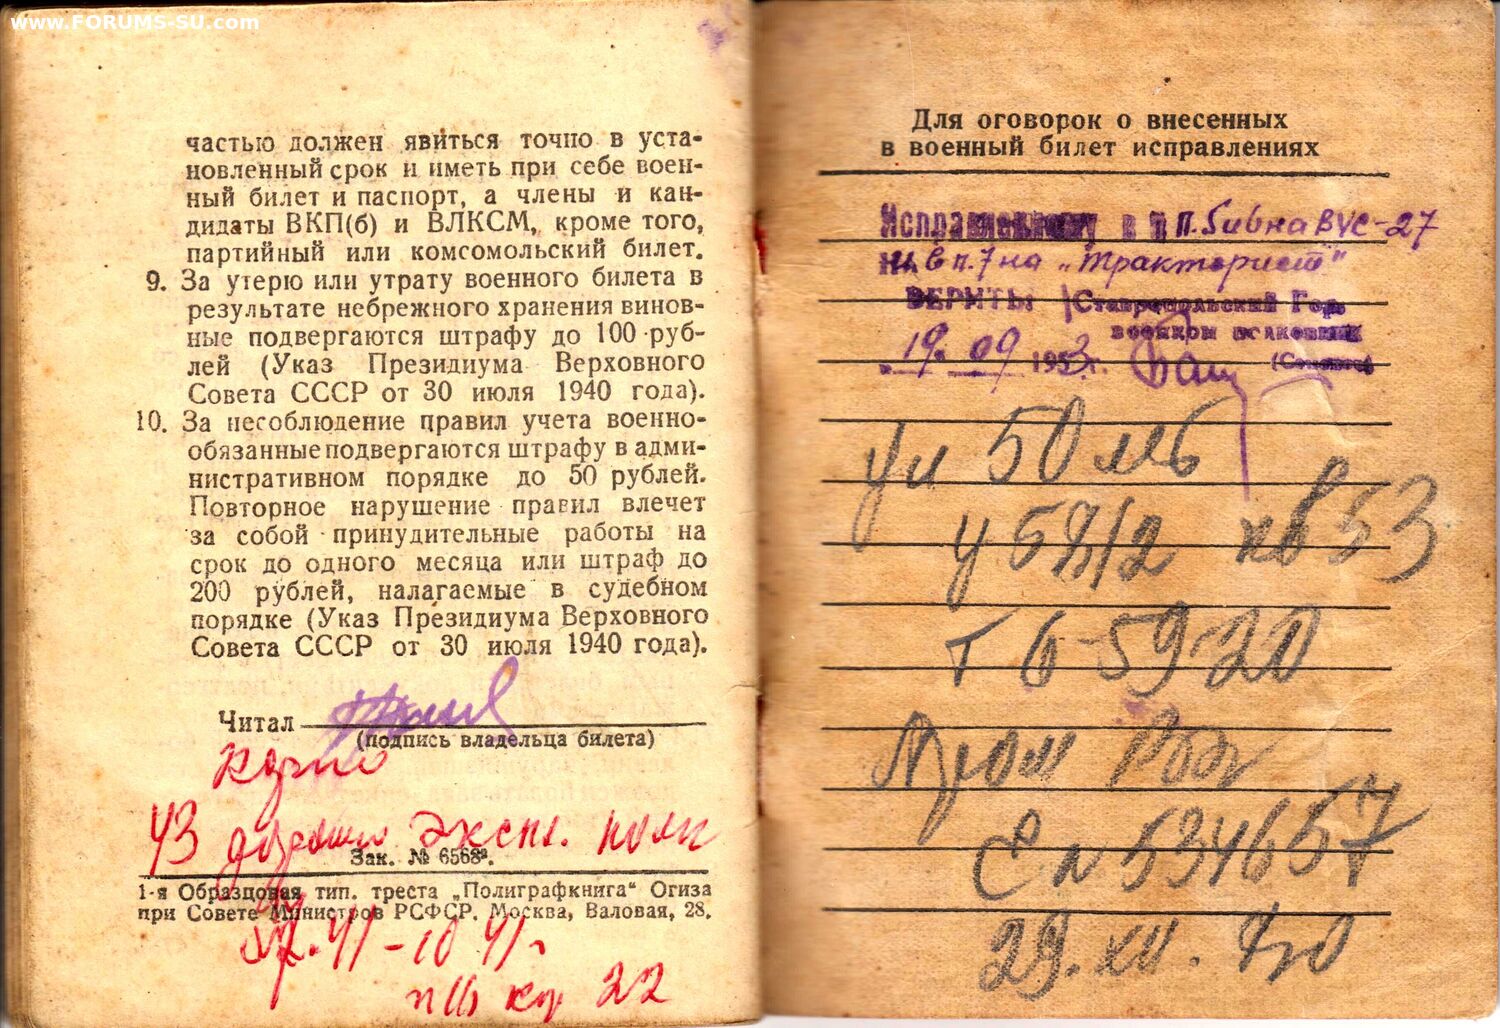 www.FORUMS-SU.com
частью должен явиться точно в уста-
новленный срок и иметь при себе воен-
ный билет и паспорт, а члены и кан-
дидаты ВКП(б) и ВЛКСМ, кроме того,
партийный или комсомольский билет.
9. За утерю или утрату военного билета в
результате небрежного хранения винов-
ные подвергаются штрафу до 100 руб-
лей (Указ Президиума Верховного
Совета СССР от 30 июля 1940 года).
10. За несоблюдение правил учета военно-
обязанные подвергаются штрафу в адми-
нистративном порядке до 50 рублей.
Повторное нарушение правил влечет
за собой принудительные работы на
срок до одного месяца или штраф до
200 рублей, налагаемые в судебном
порядке (Указ Президиума Верховного
Совета СССР от 30 июля 1940 года).
Читал
(подпись владельца билета)
43 эксп. полк
Зак. № 6568².
1-я Образцовая тип. треста „Полиграфкнига“ Огиза
при Совете Министров РСФСР. Москва, Валовая, 28.
41 - 10 41 г.
22
Для оговорок о внесенных
в военный билет исправлениях
Исправленному в п. 5 и 6 на ВУС-27
и в п. 7 на „тракторист“
ВЕРИТЬ Ставропольский Гор
военком
19. 09 1953 г.
ул 50 лет
кв 53
т 6-59-20
534657
29. XII.